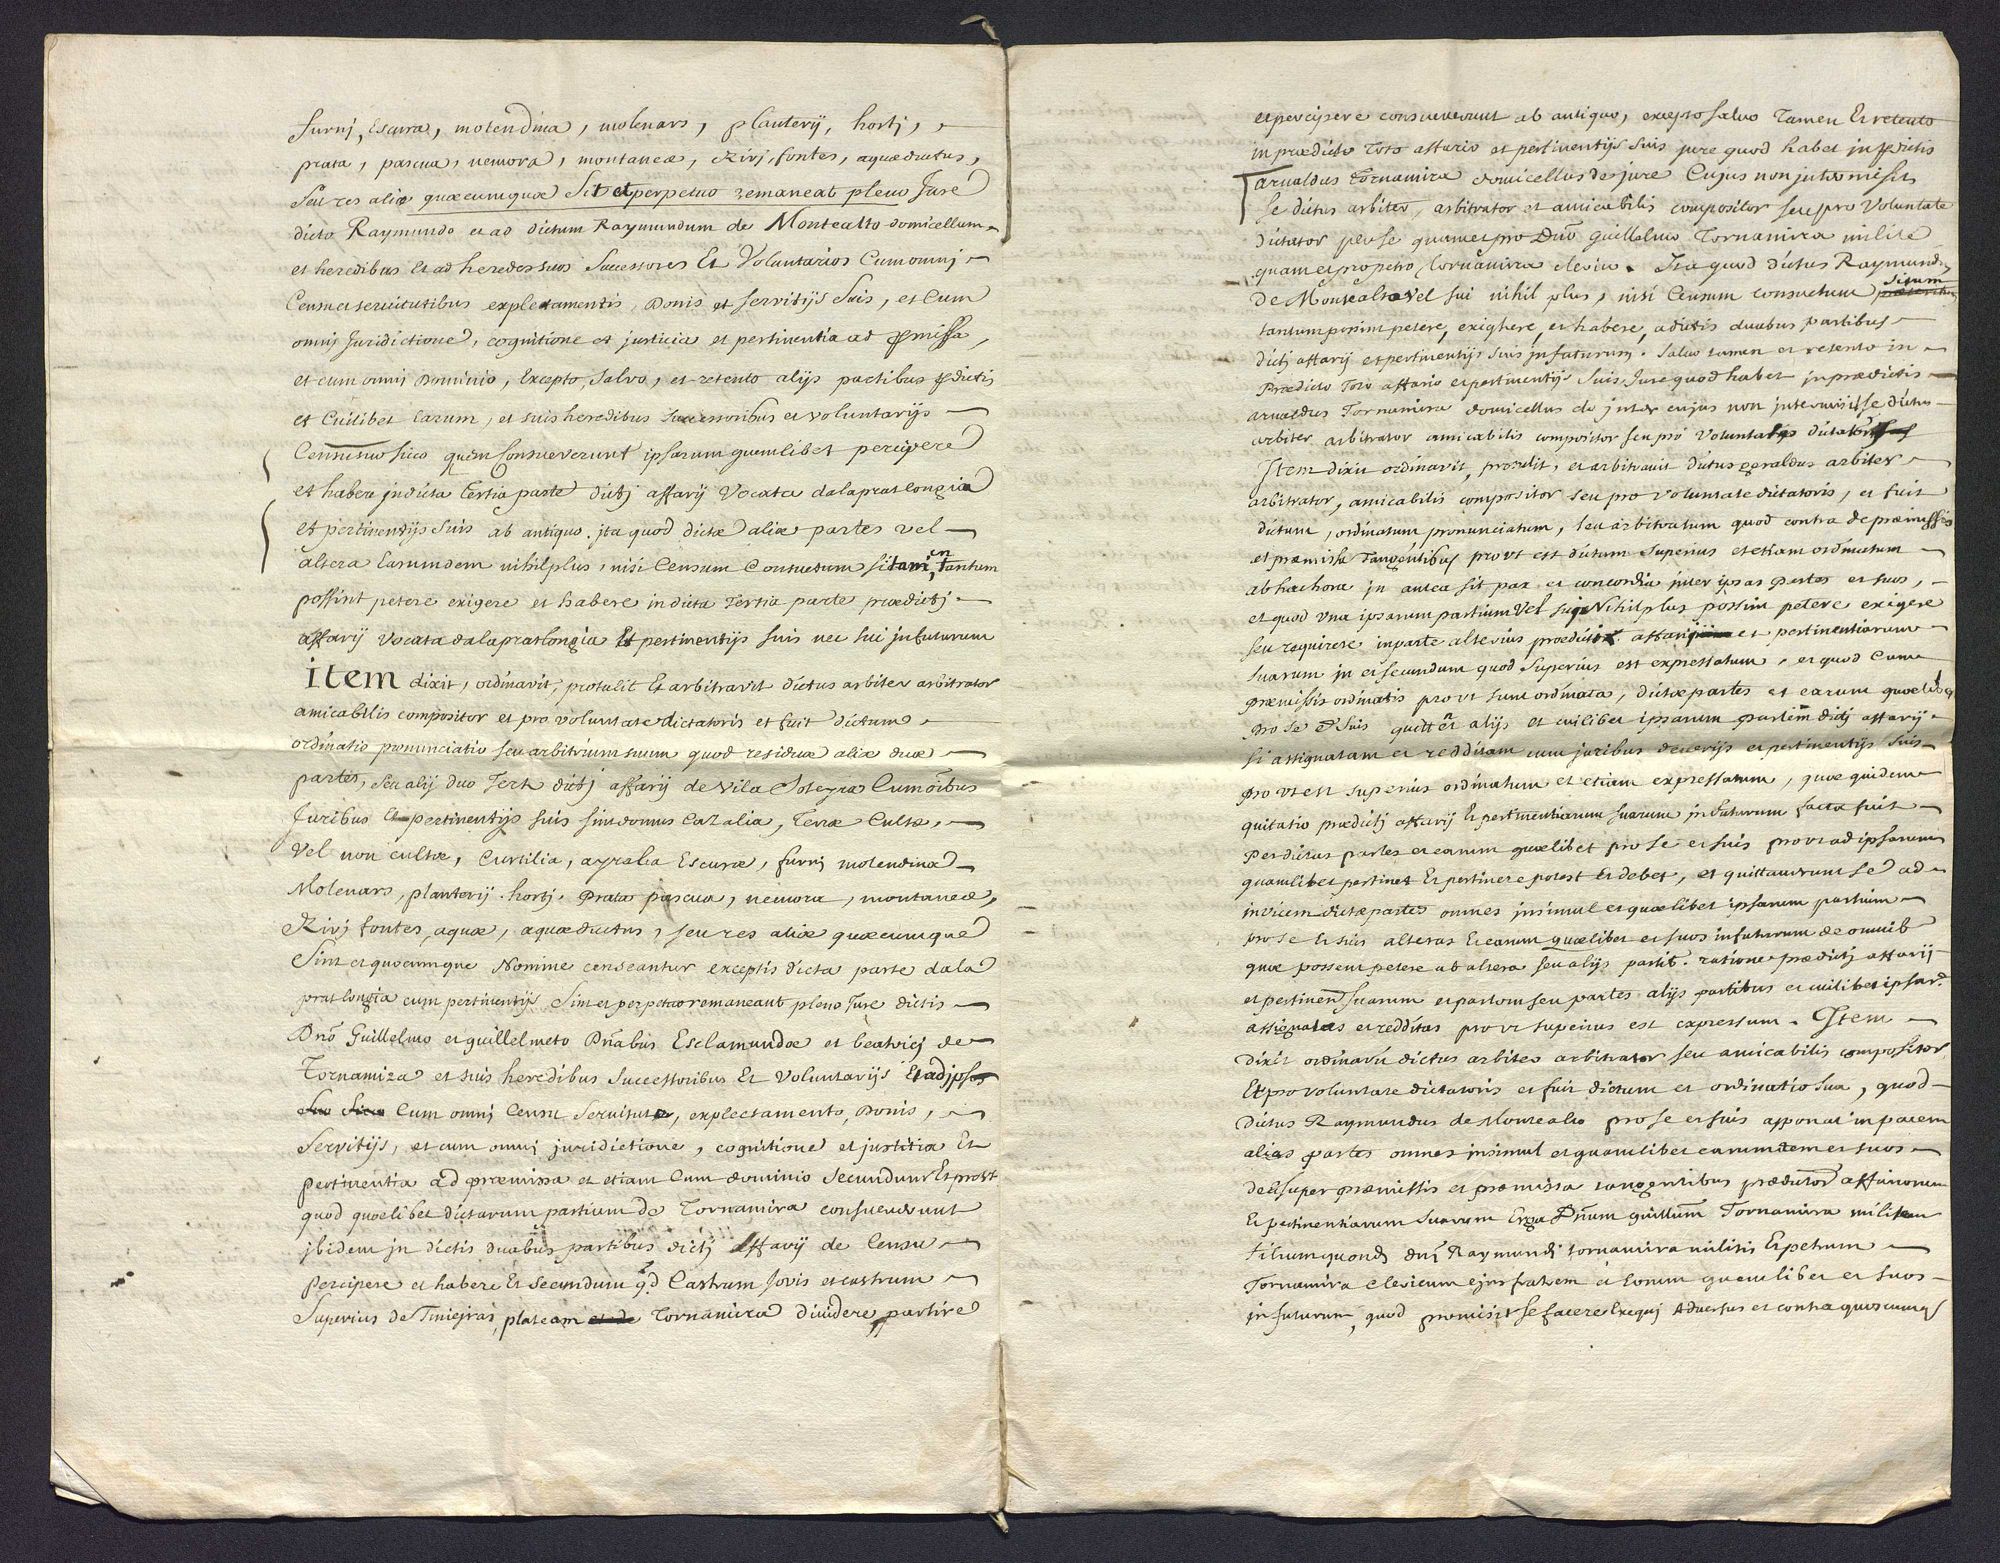 furnj, escura, molendina, molenars, planterij, hortj,
prata, pascua, nemora, montaneæ, Rivj, fontes, aquæductus,
seu res aliæ quæcumquæ Sit et perpetuo remaneat pleno Jure
dicto Raymundo et ad dictum Raymundum de Montealto domicellum
et heredibus et ad heredes suos Successores Et Voluntarios Cum omnj
Censu et servitutibus expletamentis, Donis et servitijs Suis, et Cum
omnj Juridictione, cognitione et justicia et pertinentia ad pmissa,
et cum omnj Dominio, Excepto, Salvo, et retento alijs partibus pdictis
et Cuilibet Earum, et suis heredibus successoribus et voluntarijs
Censu suo sico quem Consueverunt ipsarum quemlibet percipere
et habere in dicta tertia parte dictj affarij Vocata dalapratlongia
et pertinentijs suis ab antiquo. jta quod dictæ aliæ partes vel
altera Earumdem nihil plus, nisi Censum Consuetum sitam, en tantum
possint petere exigere et habere in dicta Tertia parte prædictj
affarij vocata dalapratlongia Et pertinentijs suis nec sui in futurum
Item dixit, ordinavit, protulit Et arbitravit dictus arbiter arbitrator
amicabilis compositor et pro voluntate dictatoris et fuit dictum
ordinatio pronunciatio seu arbitrium suum quod residua aliæ duæ
partes, seu alij duo Terti dictj affarij de Vila Soleyra Cum oibus
Juribus Et pertinentijs suis sint domus Cazalia, Terræ Cultæ,
Vel non cultæ, Curtilia, ayralia Escuræ, furnj molendina
Molenars, planterij. hortj, Prata pascua, nemora, montaneæ,
Rivj fontes, aquæ, aquæductus, seu res aliæ quæcumque
Sint et quocumque Nomine censeantur exceptis dicta parte dala
pratlongia cum pertinentijs Sint et perpetuo remaneant pleno Jure dictis
Dno Guillelmo et guillelmeto Dnabus Esclamundæ et beatricj de
Tornamira et suis heredibus Successoribus Et Voluntarijs Et ad ipsos
suo sico Cum omnj Censu Servitute, explectamento, Donis,
servitijs, et cum omnj juridictione, cognitione et justitia Et
pertinentia ad præmissa et etiam Cum dominio Secundum Et prout
quod quælibet dictarum partium de Tornamira consueverunt
jbidem jn dictis duabus partibus dictj Affarij de Censu
percipere et habere Et secundum qd Castrum Jovis et castrum
Superius de Tiniejras, plateam et de Tornamira dividere, partire
et percipere consueverunt ab antiquo, excepto salvo Tamen Et retento
in prædicto Toto affario et pertinentijs suis jure quod habet in pdictis
Arnaldus Tornamira domicellus de jure Cujus non jntromisit
se dictus arbiter, arbitrator et amicabilis compositor seu pro Voluntate
dictator per se quam et pro Dno Guillelmo Tornamira milite
quam et pro petro Tornamira cleric. Ita quod dictus Raymundus
De Montealto vel sui nihil plus, nisi Censum consuetum situm
tantum possint petere, exighere, et habere, a dictis duabus partibus
dictj affarij et pertinentijs suis jn futurum. Salvo tamen et retento in
Prædicto Toto affario et pertinentijs Suis Jure quod habet in prædictis
arnaldus Tornamira domicellus de jure cujus non jntromisit se dictus
arbiter arbitrator amicabilis compositor seu pro Voluntate dictator
Item dixit ordinavit, protulit, et arbitravit dictus geraldus arbiter
arbitrator, amicabilis compositor seu pro Voluntate dictatoris, et fuit
dictum, ordinatum pronunciatum, seu arbitratum quod contra de præmissis
et præmissa Tangentibus prout est dictum superius et etiam ordinatum
ab hac hora jn antea sit pax et concordia jnter ipsas partes et suos,
et quod Una ipsarum partium Vel sui Nihil plus possint petere exigere
seu requirere in parte alterius prædicti affarij et pertinentiarum
suarum jn et secundum quod Superius est expressatum, et quod Cum
præmissis ordinatis prout sunt ordinata, dictæ partes et earum quælibet
pro se & suis quitter alijs et cuilibet ipsarum partem dictj affarij
si assignatam et redditam cum juribus deverijs et pertinentijs suis
prout est superius ordinatum et etiam expressatum, quæ quidem
quitatio prædictj affarij Et pertinentiarum suarum jn futurum facta fuit
Per dictas partes et earum quælibet pro se et suis prout ad ipsarum
quamlibet pertinet Et pertinere potest Et debet, et quittaverunt se ad
invicem dictæ partes omnes jnsimul et quælibet ipsarum partium
pro se Et suis alteras Et earum quælibet et suos in futurum de omnib
quæ possent petere ab altera seu alijs partib. ratione prædictj affarij
et pertinen suarum et partem seu partes alijs partibus et cuilibet ipsar.
assignatas et redditas prout superius est expressum. Item
dixit ordinavit dictus arbiter arbitrator seu amicabilis compositor
Et pro voluntate dictatoris et fuit dictum et ordinatio sua, quod
Dictus Raymundus de Montealto pro se et suis apponat in pacem
alias partes omnes jnsimul et quamlibet earumdem et suos
de & super præmissis et præmissa tangentibus prædictor affariorum
Et pertinentiarum Suarum Erga Dnum guillum Tornamira militem
filium quond dnj Raymundj tornamira militis Et petrum
Tornamira Clericum ejus fratrem & eorum quemlibet et suos
in futurum, quod promisit se facere Exequj Adversus et contra quoscumq